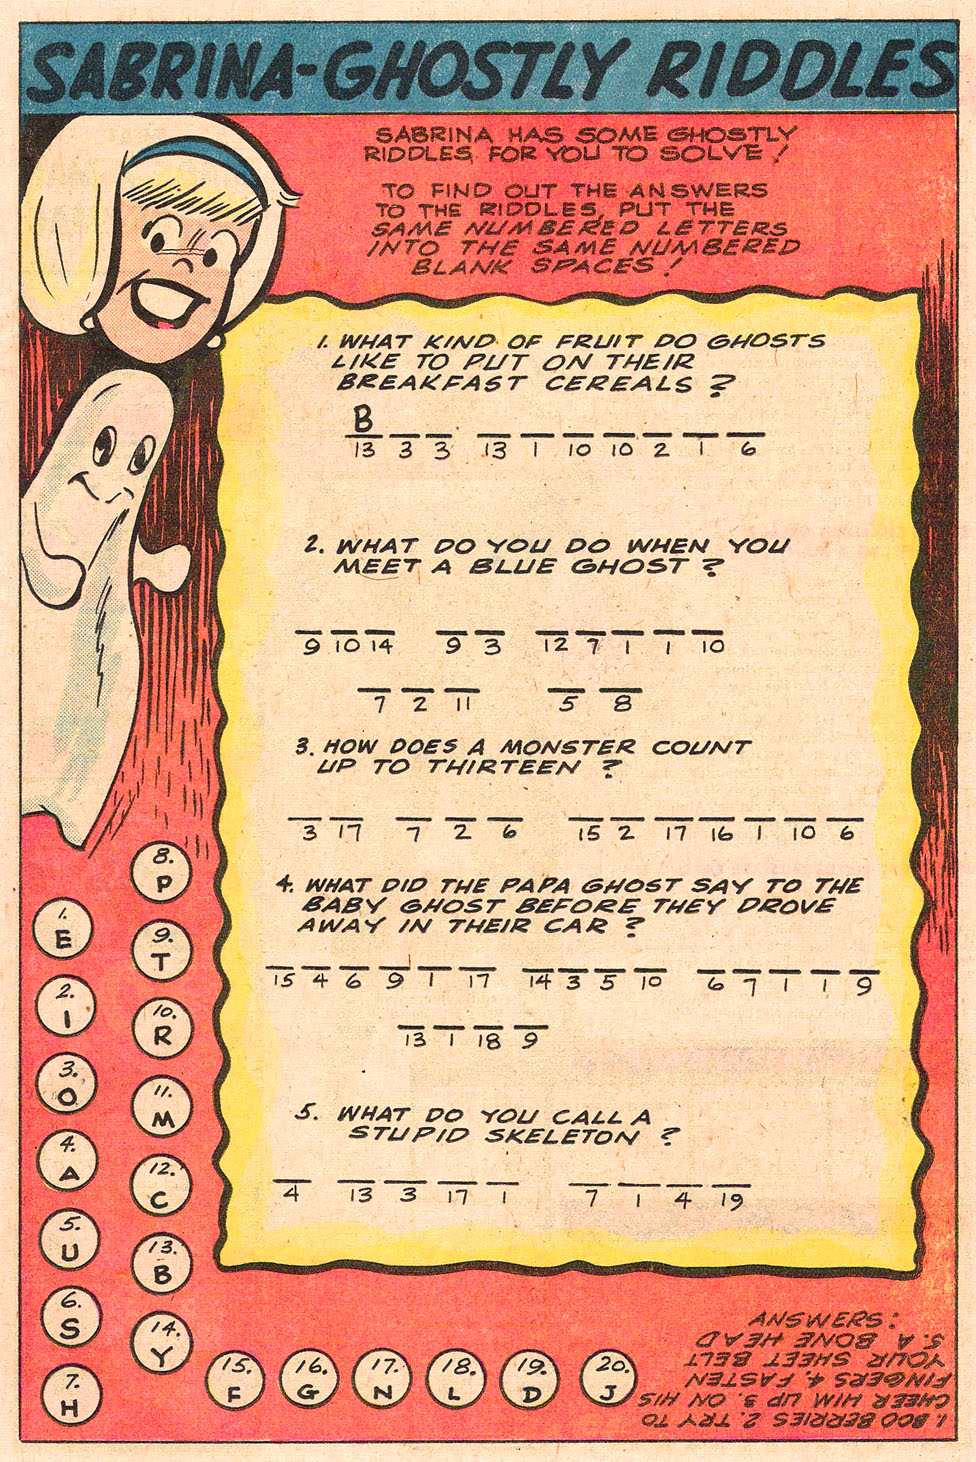 SABRINA-GHOSTLY RIDDLES
SABRINA HAS SOME GHOSTLY
RIDDLES, FOR YOU TO SOLVE!
TO FIND OUT THE ANSWERS
TO THE RIDDLES, PUT THE
SAME NUMBERED LETTERS
INTO THE SAME NUMBERED
BLANK SPACES!
1. WHAT KIND OF FRUIT DO GHOSTS
LIKE TO PUT ON THEIR
BREAKFAST CEREALS?
B
13 3 3 13 1 10 10 2 1 6
2. WHAT DO YOU DO WHEN YOU
MEET A BLUE GHOST?
9 10 14 9 3 12 7 1 1 10
7 2 11 5 8
3. HOW DOES A MONSTER COUNT
UP TO THIRTEEN?
3 17 7 2 6 15 2 17 16 1 10 6
4. WHAT DID THE PAPA GHOST SAY TO THE
BABY GHOST BEFORE THEY DROVE
AWAY IN THEIR CAR?
15 4 6 9 1 17 14 3 5 10 6 7 1 1 9
13 1 18 9
5. WHAT DO YOU CALL A
STUPID SKELETON?
4 13 3 17 1 7 1 4 19
1. E
2. I
3. O
4. A
5. U
6. S
7. H
8. P
9. T
10. R
11. M
12. C
13. B
14. Y
15. F
16. G
17. N
18. L
19. D
20. J
ANSWERS:
1. BOO BERRIES 2. TRY TO
CHEER HIM UP 3. ON HIS
FINGERS 4. FASTEN
YOUR SHEET BELT
5. A BONE HEAD